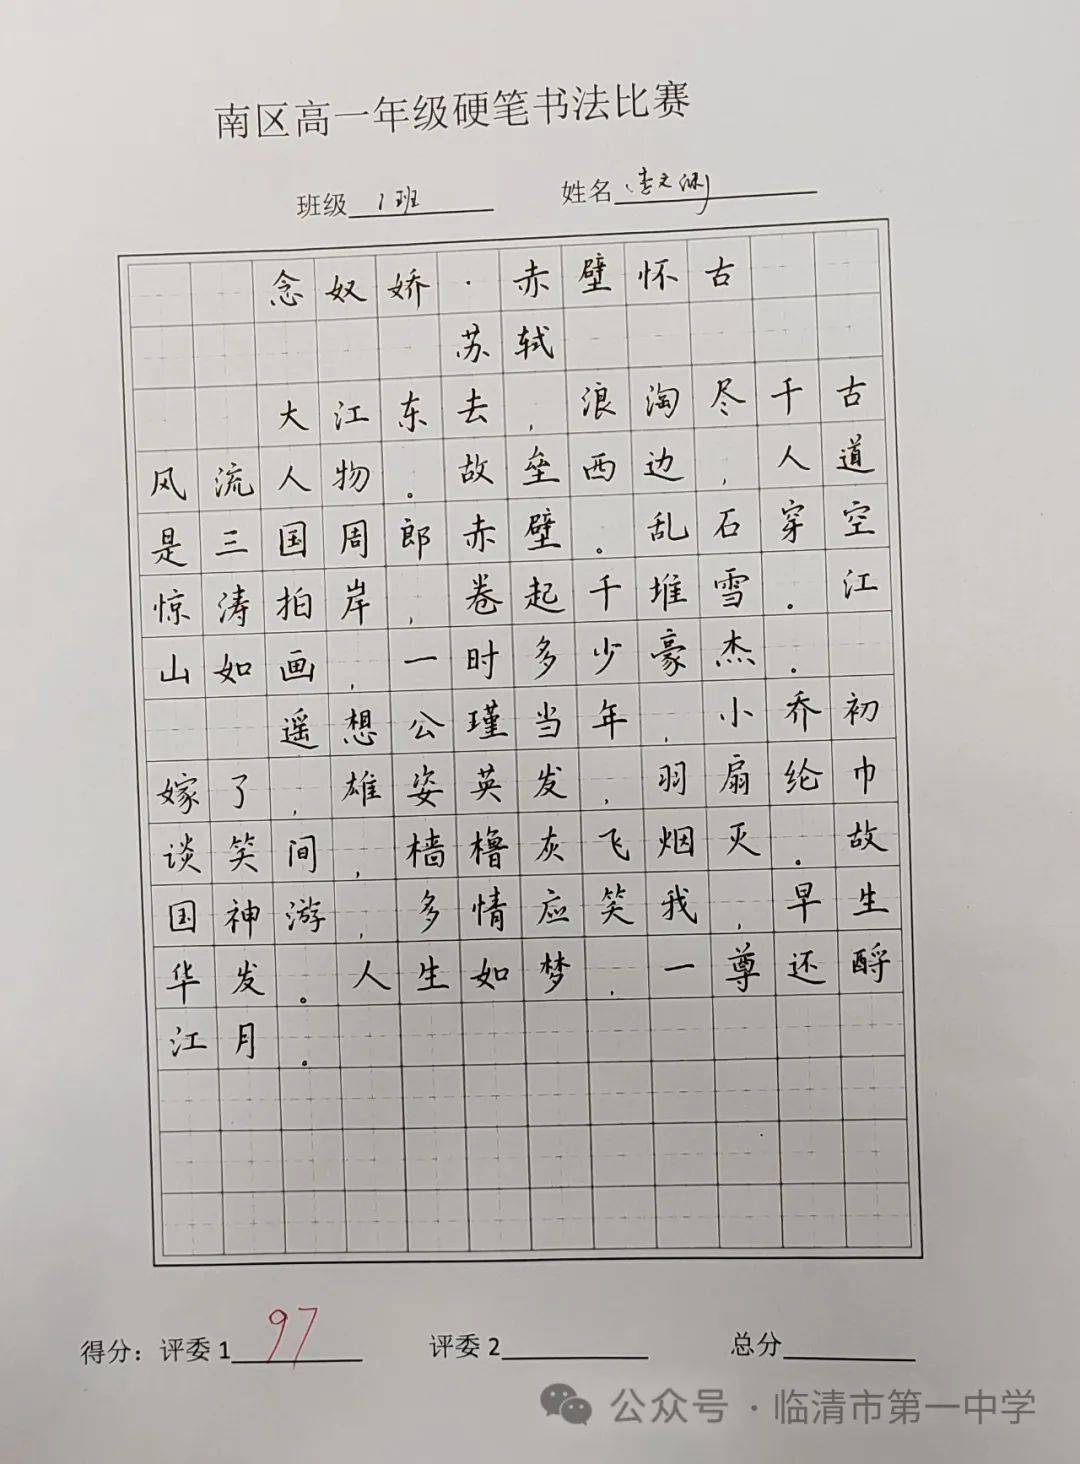 南区高一年级硬笔书法比赛
班级 1班 姓名 李文
念奴娇·赤壁怀古
苏轼
大江东去,浪淘尽千古
风流人物。故垒西边,人道
是三国周郎赤壁。乱石穿空
惊涛拍岸,卷起千堆雪。江
山如画,一时多少豪杰。
遥想公瑾当年,小乔初
嫁了,雄姿英发,羽扇纶巾
谈笑间,樯橹灰飞烟灭。故
国神游,多情应笑我,早生
华发。人生如梦,一尊还酹
江月。
得分：评委1 97 评委2 总分
公众号·临清市第一中学